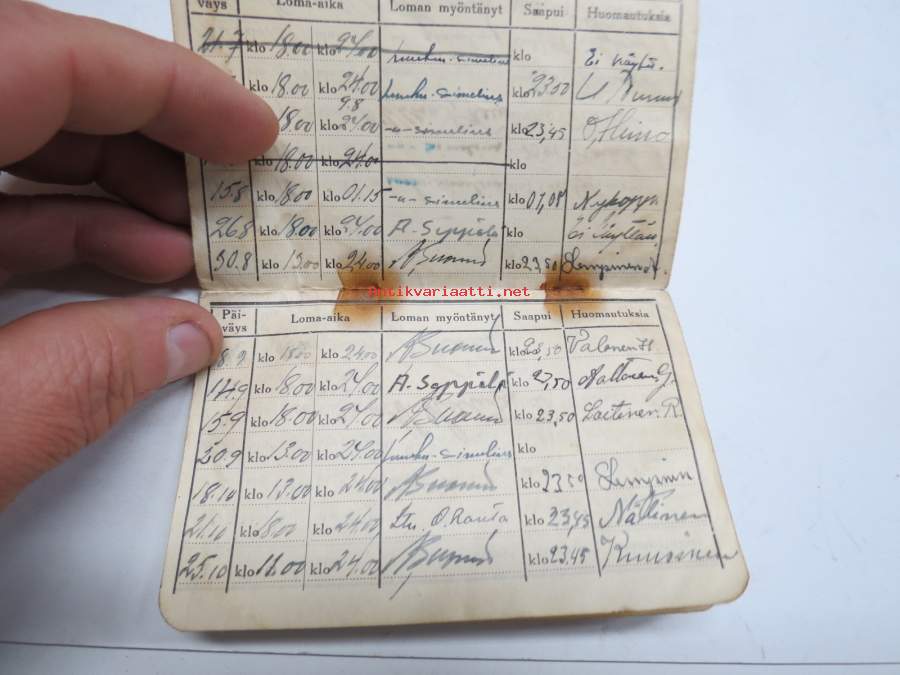 väys Loma-aika Loman myöntänyt Saapui Huomautuksia
21.7 klo 18.00 klo 24.00 klo Ei käyttä.
klo 18.00 klo 24.00 simelius klo 23.50
9.8
18.00 klo 24.00 -"- simelius klo 23,45 O. Heino
klo 18.00 klo 24.00 klo
15.8 klo 18.00 klo 01.15 -"- simelius klo 01,08
26.8 klo 18.00 klo 24.00 A. Seppälä klo Ei
30.8 klo 13.00 klo 24.00 klo 23,50
Antikvariaatti.net
Päi-
väys Loma-aika Loman myöntänyt Saapui Huomautuksia
8.9 klo 18.00 klo 24.00 klo 23,50 Valonen H.
14.9 klo 18.00 klo 24.00 A. Seppälä klo 23,50
15.9 klo 18.00 klo 24.00 klo 23,50 Laitinen. R.
30.9 klo 13.00 klo 24.00 simelius klo
18.10 klo 13.00 klo 24.00 klo 23 50
21.10 klo 18.00 klo 24.00 Ltn. O. Rauta klo 23,45 Nättinen
25.10 klo 18.00 klo 24.00 klo 23.45 Kuusinen